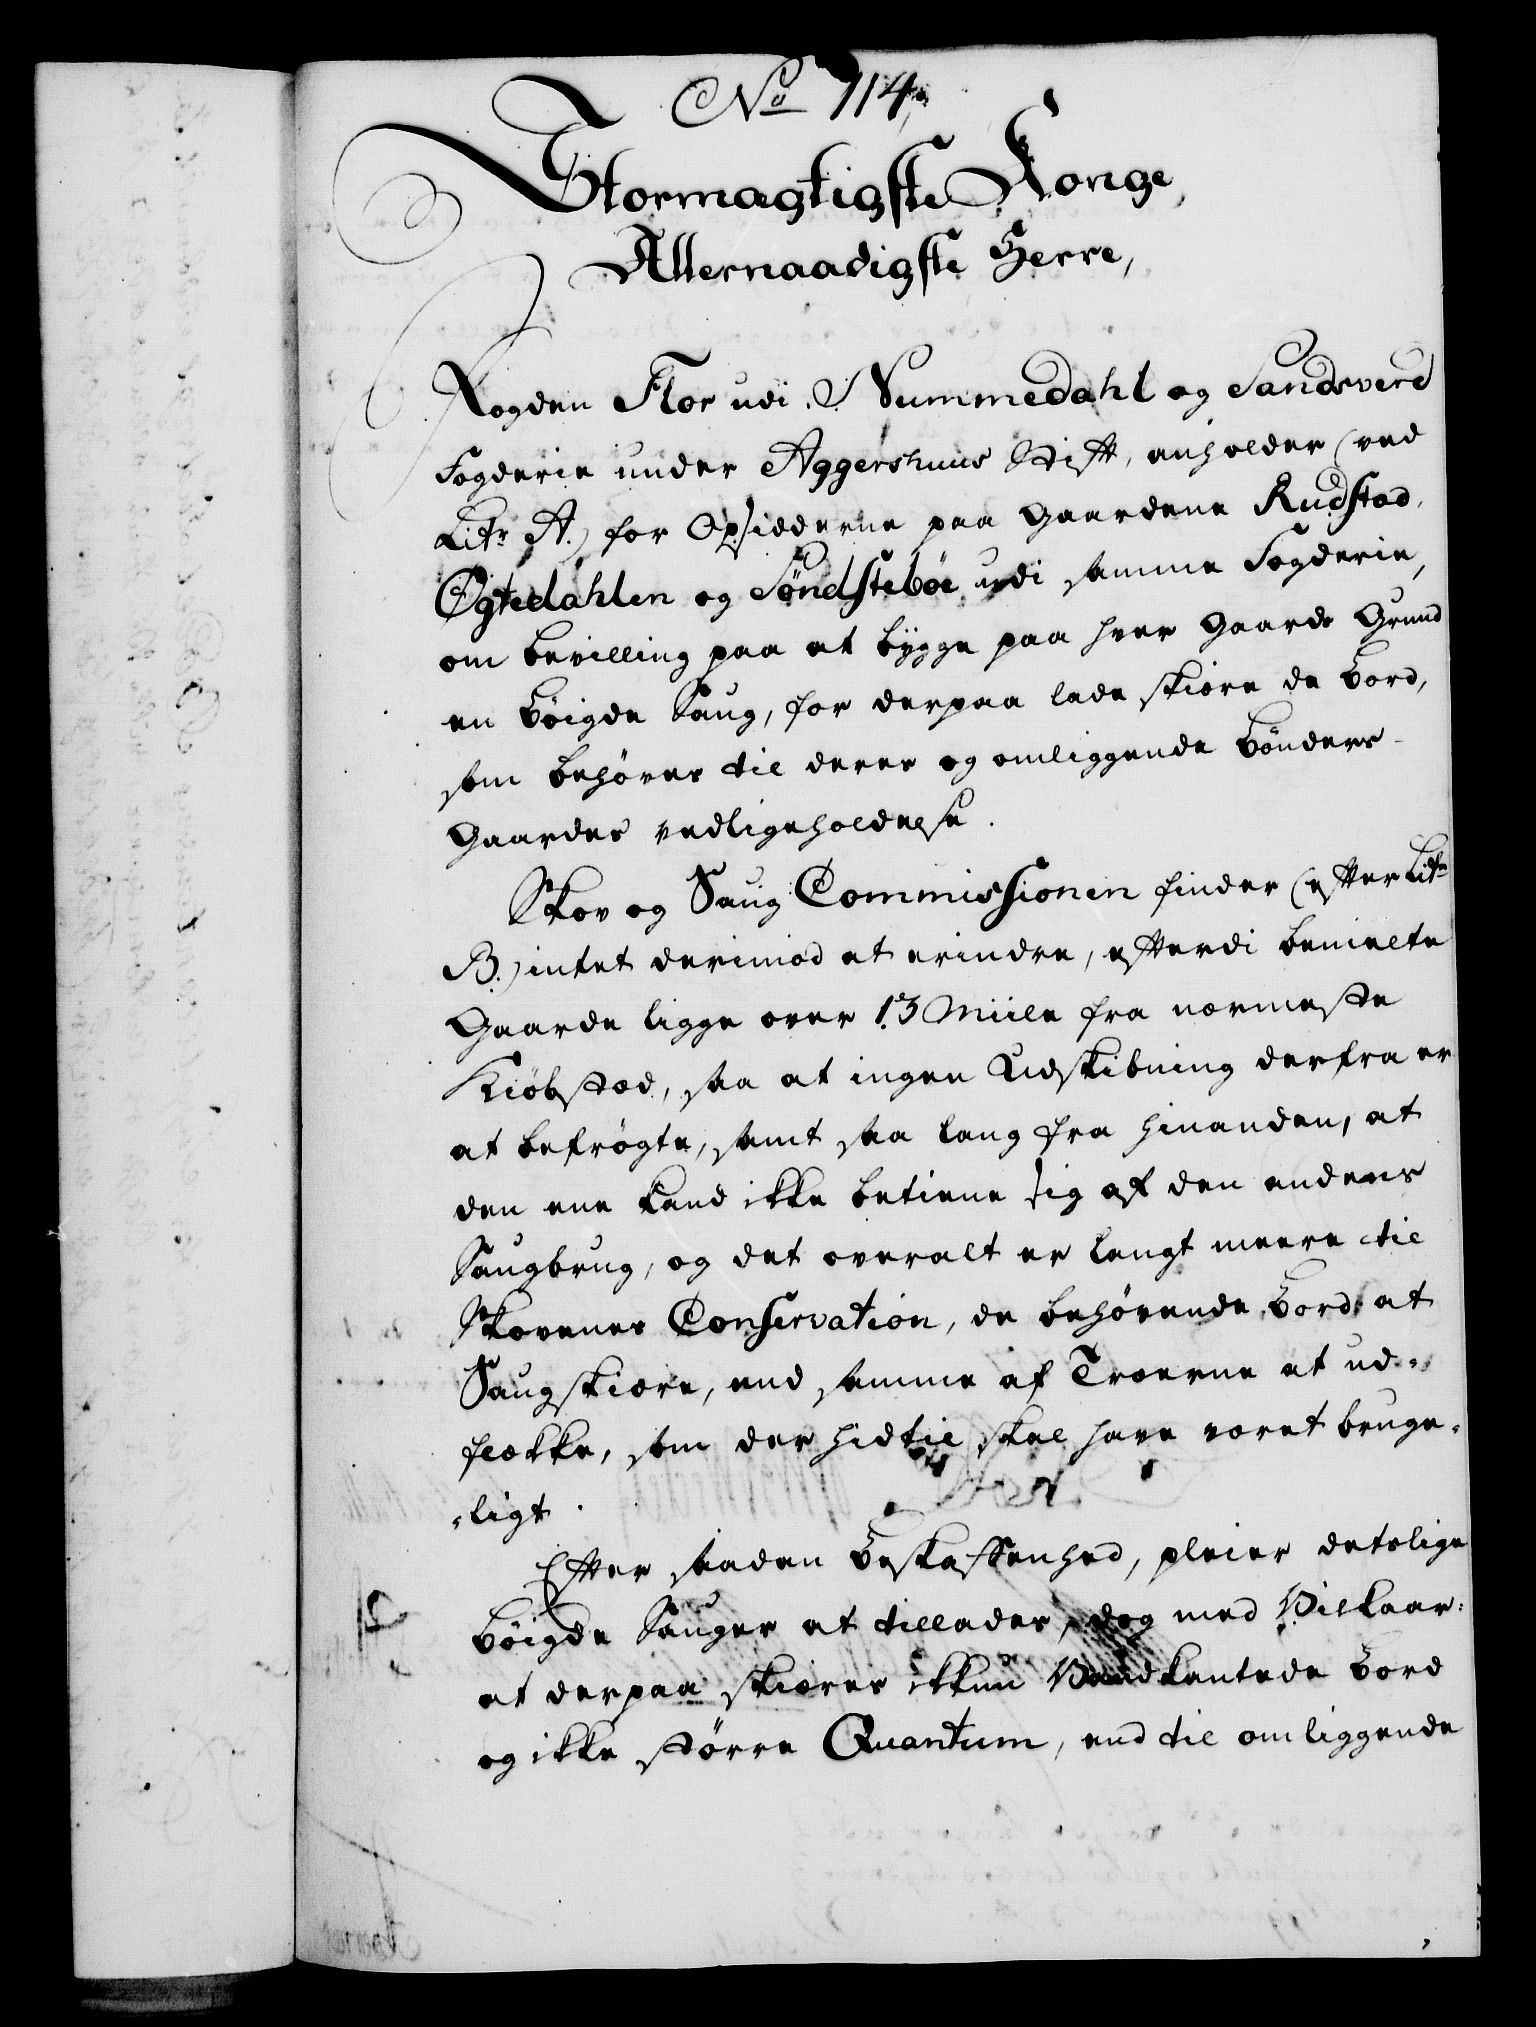 No 114.
Stormægtigste Konge,
Allernaadigste Herre,
Fogden Flor udi Nummedahl og Sandsverd
Fogderie under Aggershuus Stift, anholder (ved
Litr A.) for Opsidderne paa Gaardene Rudstad,
Øgtedahlen og Söndsteböe udi samme Fogderie,
om bevilling paa at bÿgge paa hver Gaards Grund
en Böigde Saug, for derpaa lade skiære de Bord,
som behøves til deres og omliggende Bønders
Gaardes vedligeholdelse.
Skov og Saug Commissionen finder (efter Litr
B.) intet derimod at erindre, efterdi bemelte
Gaarde ligge over 13 Miile fra nærmeste
Kiøbstæd, saa at ingen Udskibning derfra er
at befrøgte, samt saa lang fra hinanden, at
den ene kand ikke betiene sig af den andens
Saugbrug, og det overalt er langt meere til
Skovenes Conservation, de behøvende Bord at
Saugskiære, end samme af Træerne at ud-
flække, som der hidtil skal have været bruge-
-ligt.
Efter saadan Beskaffenhed, pleier detslige
Böigde Sauger at tillades, dog med Vilkaar:
at derpaa skiæres ikkun Vandkantede Bord
og ikke större Quantum, end til omliggende